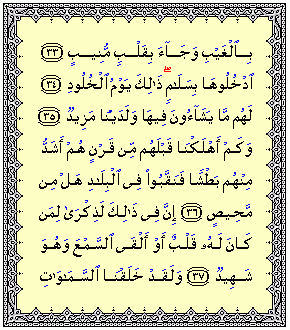 بِٱلۡغَيۡبِ وَجَآءَ بِقَلۡبٖ مُّنِيبٍ ٣٣
ٱدۡخُلُوهَا بِسَلَٰمٖۖ ذَٰلِكَ يَوۡمُ ٱلۡخُلُودِ ٣٤
لَهُم مَّا يَشَآءُونَ فِيهَا وَلَدَيۡنَا مَزِيدٞ ٣٥
وَكَمۡ أَهۡلَكۡنَا قَبۡلَهُم مِّن قَرۡنٍ هُمۡ أَشَدُّ
مِنۡهُم بَطۡشٗا فَنَقَّبُواْ فِي ٱلۡبِلَٰدِ هَلۡ مِن
مَّحِيصٍ ٣٦ إِنَّ فِي ذَٰلِكَ لَذِكۡرَىٰ لِمَن
كَانَ لَهُۥ قَلۡبٌ أَوۡ أَلۡقَى ٱلسَّمۡعَ وَهُوَ
شَهِيدٞ ٣٧ وَلَقَدۡ خَلَقۡنَا ٱلسَّمَٰوَٰتِ